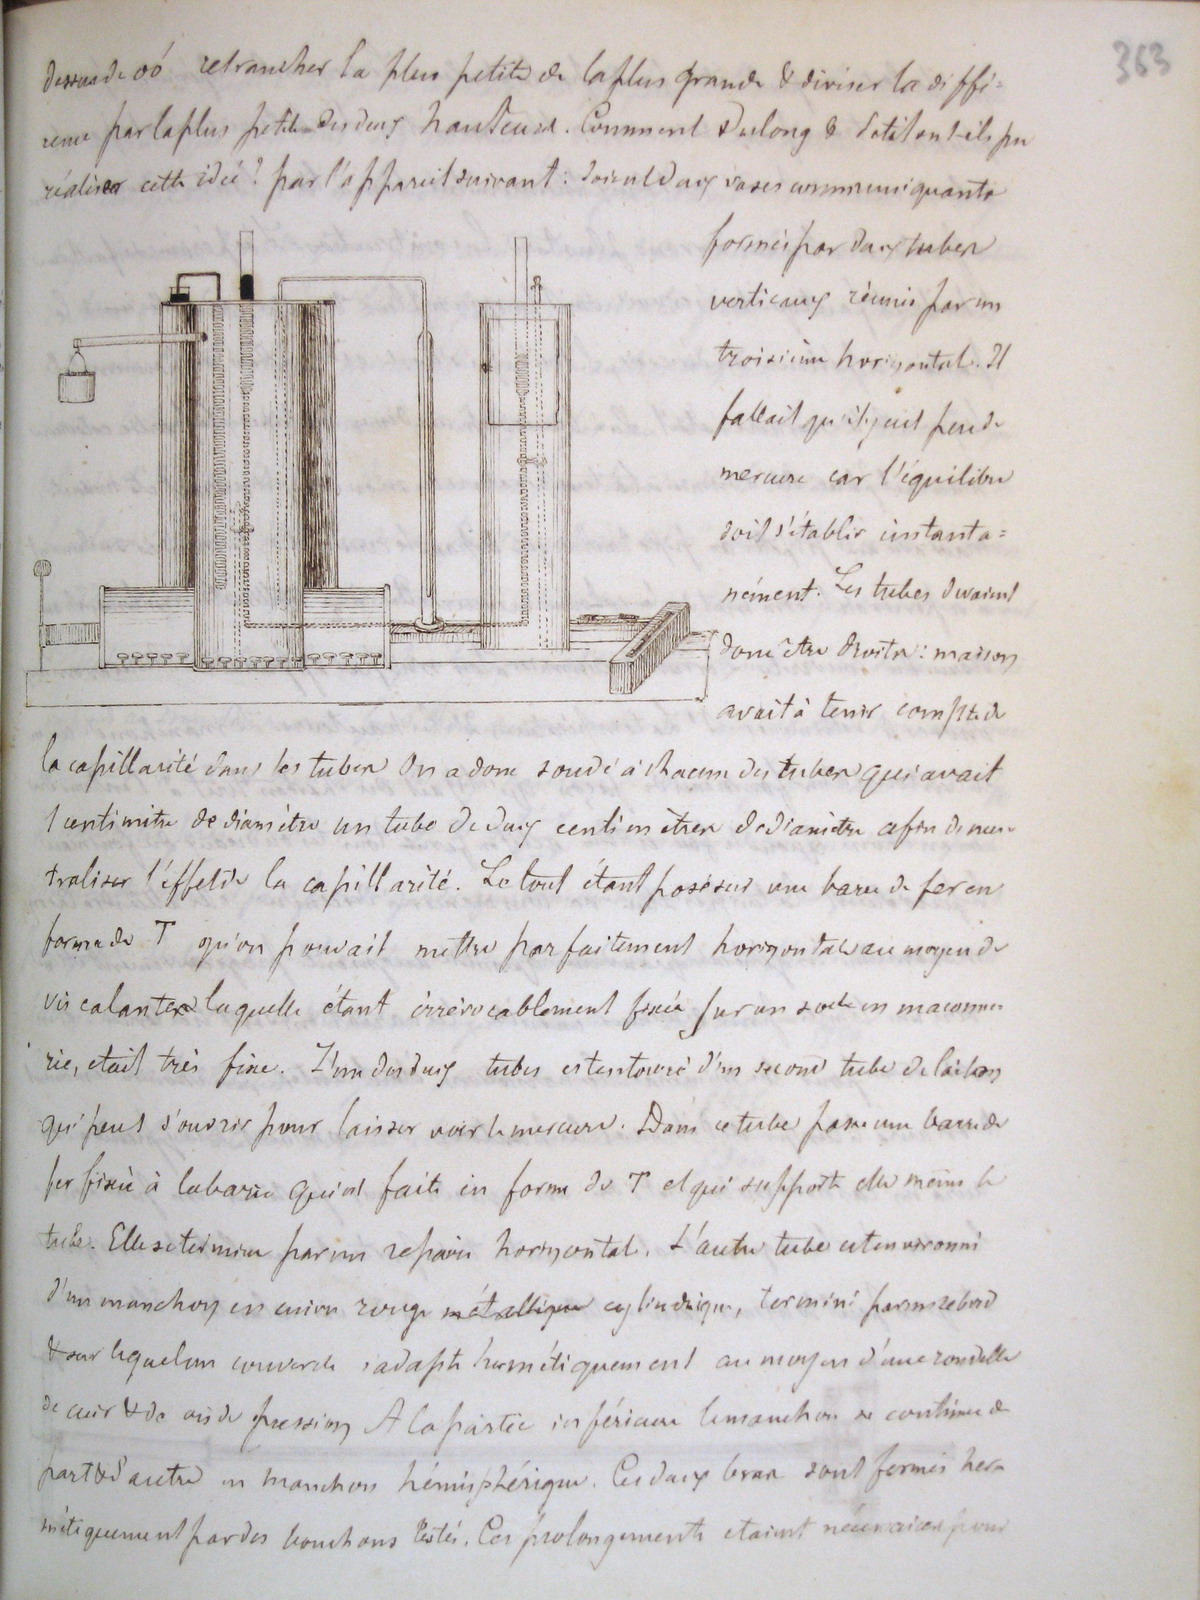 363
dessus de 0° retrancher la plus petite de la plus grande & diviser la diffé=
rence par la plus petite des deux hauteurs. Comment Dulong & Petit ont-ils pu
réaliser cette idée? par l'appareil suivant: soient deux vases communiquants
formés par deux tubes
verticaux réunis par un
troisième horizontal. Il
fallait qu'il y eut peu de
mercure car l'équilibre
doit s'établir instanta=
nément. Les tubes devaient
donc être droits: mais on
avait à tenir compte de
la capillarité dans les tubes On a donc soudé à chacun des tubes qui avait
1 centimètre de diamètre un tube de deux centimètres de diamètre afin de neu-
traliser l'effet de la capillarité. Le tout étant posé sur une barre de fer en
forme de T qu'on pouvait mettre parfaitement horizontale au moyen de
vis calantes laquelle étant irrévocablement fixée sur un socle en maconne
rie, etait très fixe. L'un des deux tubes est entouré d'un second tube de laiton
qui peut s'ouvrir pour laisser voir le mercure. Dans ce tube passe une barre de
fer fixée à la barre qui est faite en forme de T et qui supporte elle même le
tube. Elle se termine par un repère horizontal. L'autre tube est environné
d'un manchon en cuivre rouge métallique cylindrique, terminé par un rebord
& sur lequel un couvercle s'adapte hermétiquement au moyen d'une rondelle
de cuir & de vis de pression A la partie inférieure le manchon se continue de
part & d'autre en manchon hémisphérique. Ces deux bras sont fermés her-
métiquement par des bouchons lestés. Ces prolongements etaient nécessaires pour